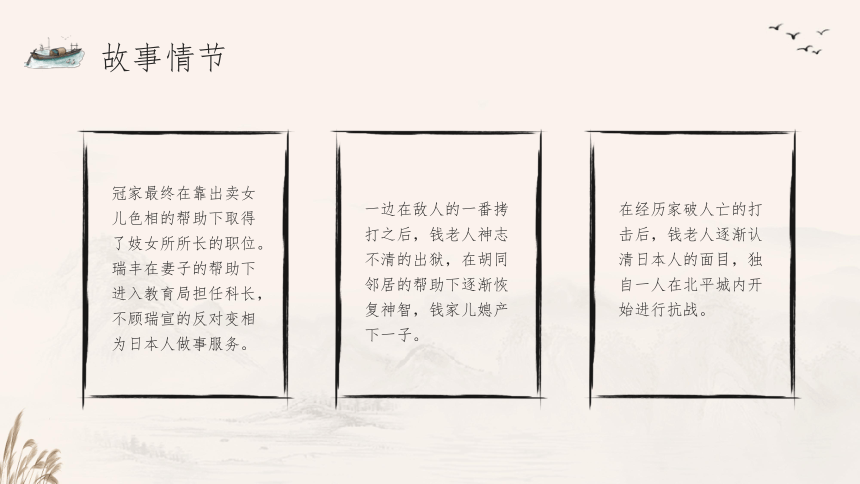 故事情节
冠家最终在靠出卖女
儿色相的帮助下取得
了妓女所所长的职位。
瑞丰在妻子的帮助下
进入教育局担任科长，
不顾瑞宣的反对变相
为日本人做事服务。
一边在敌人的一番拷
打之后，钱老人神志
不清的出狱，在胡同
邻居的帮助下逐渐恢
复神智，钱家儿媳产
下一子。
在经历家破人亡的打
击后，钱老人逐渐认
清日本人的面目，独
自一人在北平城内开
始进行抗战。